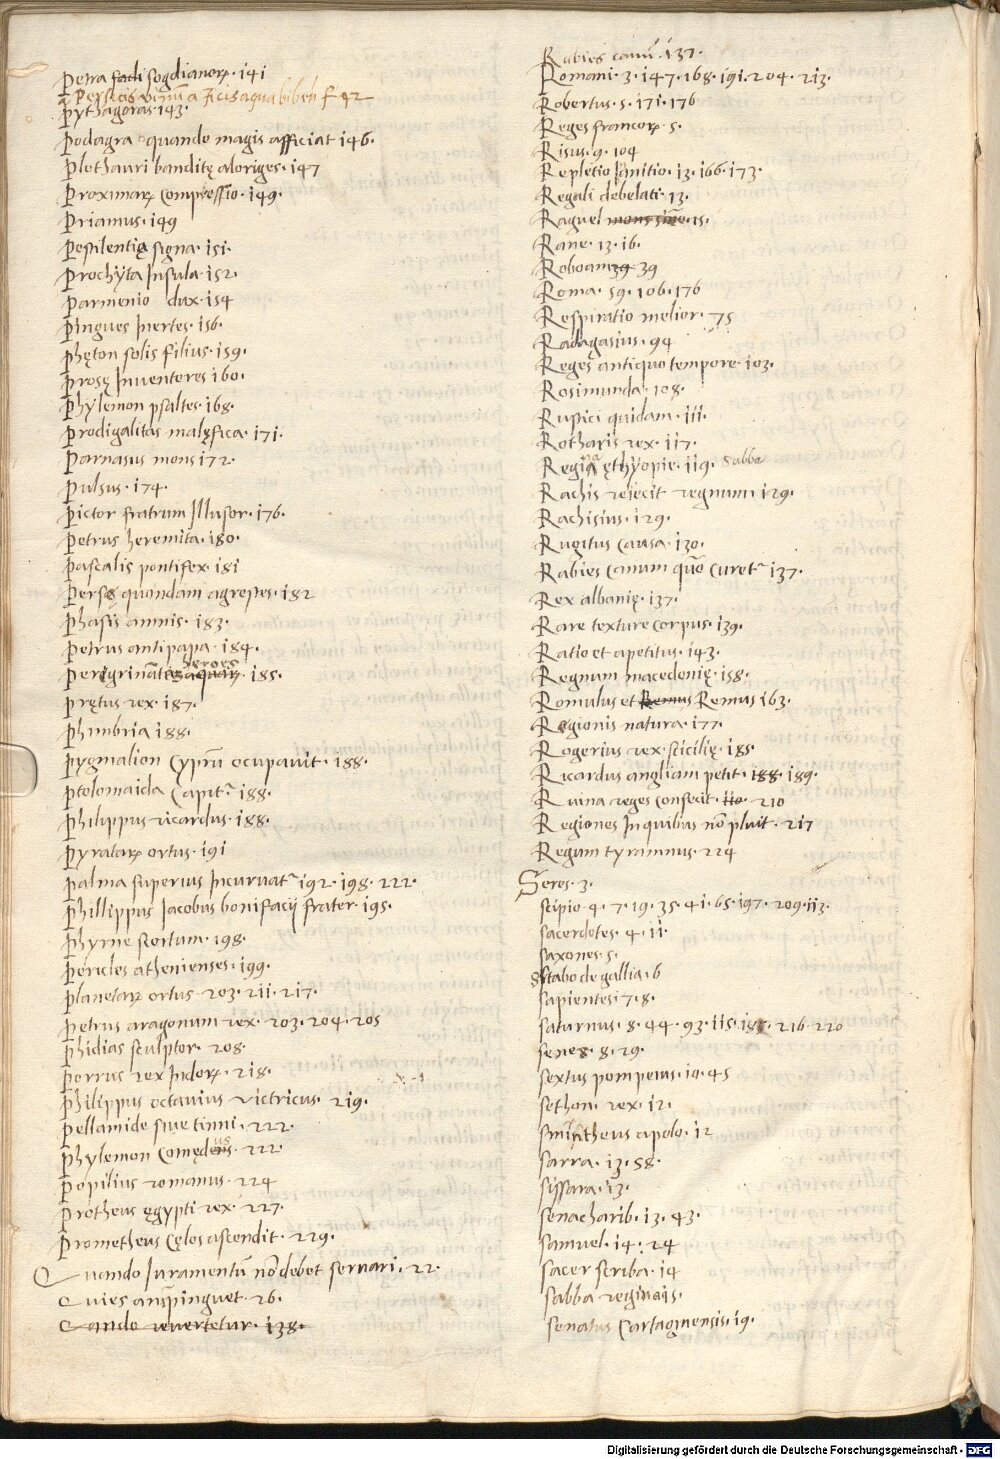 Petra sogdianoꝝ · 141
Pythagoras 143
Podagra quando magis afficiat 146.
Plothauri banditę aloriges · 147
Proximaꝝ compressio · 149.
Priamus · 149
Pestilentię signa · 151.
Prochyta Insula · 152.
Parmenio dux · 154
Pingues Inertes · 156.
Phęton solis filius · 159.
Prosę Inventores 160.
Phylemon psaltes · 168.
Prodigalitas malęfica · 171.
Parnasus mons 172.
Pulsus · 174.
Pictor fratrum Illusor · 176.
Petrus heremita · 180.
Pascalis pontifex · 181
Persę quondam agrestes · 182
Phasis amnis · 183.
Petrus antipapa · 184.
185.
Prętus rex · 187.
Phimbria 188.
Pygmalion Cyprũ ocupavit · 188.
Ptolomaida Capit᷑ 188.
Philippus ricardus · 188.
Pyrataꝝ ortus · 191
Palma superius Incurvat᷑ 192 · 198 · 222.
Phillippus Iacobus bonifacij frater · 195.
Phyrne scortum · 198.
Pericles athenienses · 199.
Planetaꝝ ortus · 203 · 211 · 217.
Petrus aragonum rex · 203 · 204 · 205
Phidias sculptor · 208.
Porrus rex Indoꝝ · 218.
Philippus octavius victricus · 219.
Pellamide sive tinni · 222.
Phylemon Comędus · 222
Popilius romanus · 224
Protheus ęgypti rex · 227.
Prometheus Cęlos ascendit · 229.
Quando Iuramentũ nõ debet servari · 22.
Quies · 26.
Qando revertetur · 138.
Rabies canũ · 137.
Romani · 3 · 147 · 168 · 191 · 204 · 213.
Robertus · 5 · 171 · 176
Reges francoꝝ 5.
Risus · 9 · 104
Repletio Initio · 13 · 166 · 173.
Regali debelati · 13.
Raguel · 15.
Rane · 13 · 16.
Roboam 39 39
Roma · 59 · 106 · 176
Respiratio melior · 75
Radagasius · 94
Reges antiquo tempore · 103.
Rosimunda · 108.
Rustici quidam · 111.
Rotharis rex · 117.
Regina ęthyopie · 119. Sabba
Rachis reiecit regnum 129.
Rachisius · 129.
Rugitus Causa · 130.
Rabies canum quõ Curet᷑ 137.
Rex albanię · 137.
Rare texture corpus · 139.
Ratio et apetitus · 143.
Regnum macedonię · 158.
Romulus et Remus Remus 163.
Regionis natura · 177.
Rogerius rex scicilię · 185.
Ricardus angliam petit · 188 · 189.
Ruina reges consecit · 110 · 210
Regiones In quibus nõ pluit · 217
Regum tyramnus · 224
Seres · 3.
Scipio 4 · 7 · 19 · 35 · 41 · 65 · 197 · 209 · 113.
Sacerdotes · 4 · 11.
Saxones · 5.
Stabo de gallia · 6
Sapientes 7 · 8.
Saturnus · 8 · 44 · 93 · 115 · 216 · 220
Senes · 8 · 29.
Sextus pompeius · 10 · 45
Sethon · rex · 12.
Smintheus apolo · 12
Sarra · 13 · 58.
Sissara · 13.
Senacharib · 13 · 43.
Samuel · 14 · 24
Sacer scriba · 14
Sabba regina 15.
Senatus Cartaginensis · 19.
Digitalisierung gefördert durch die Deutsche Forschungsgemeinschaft · DFG